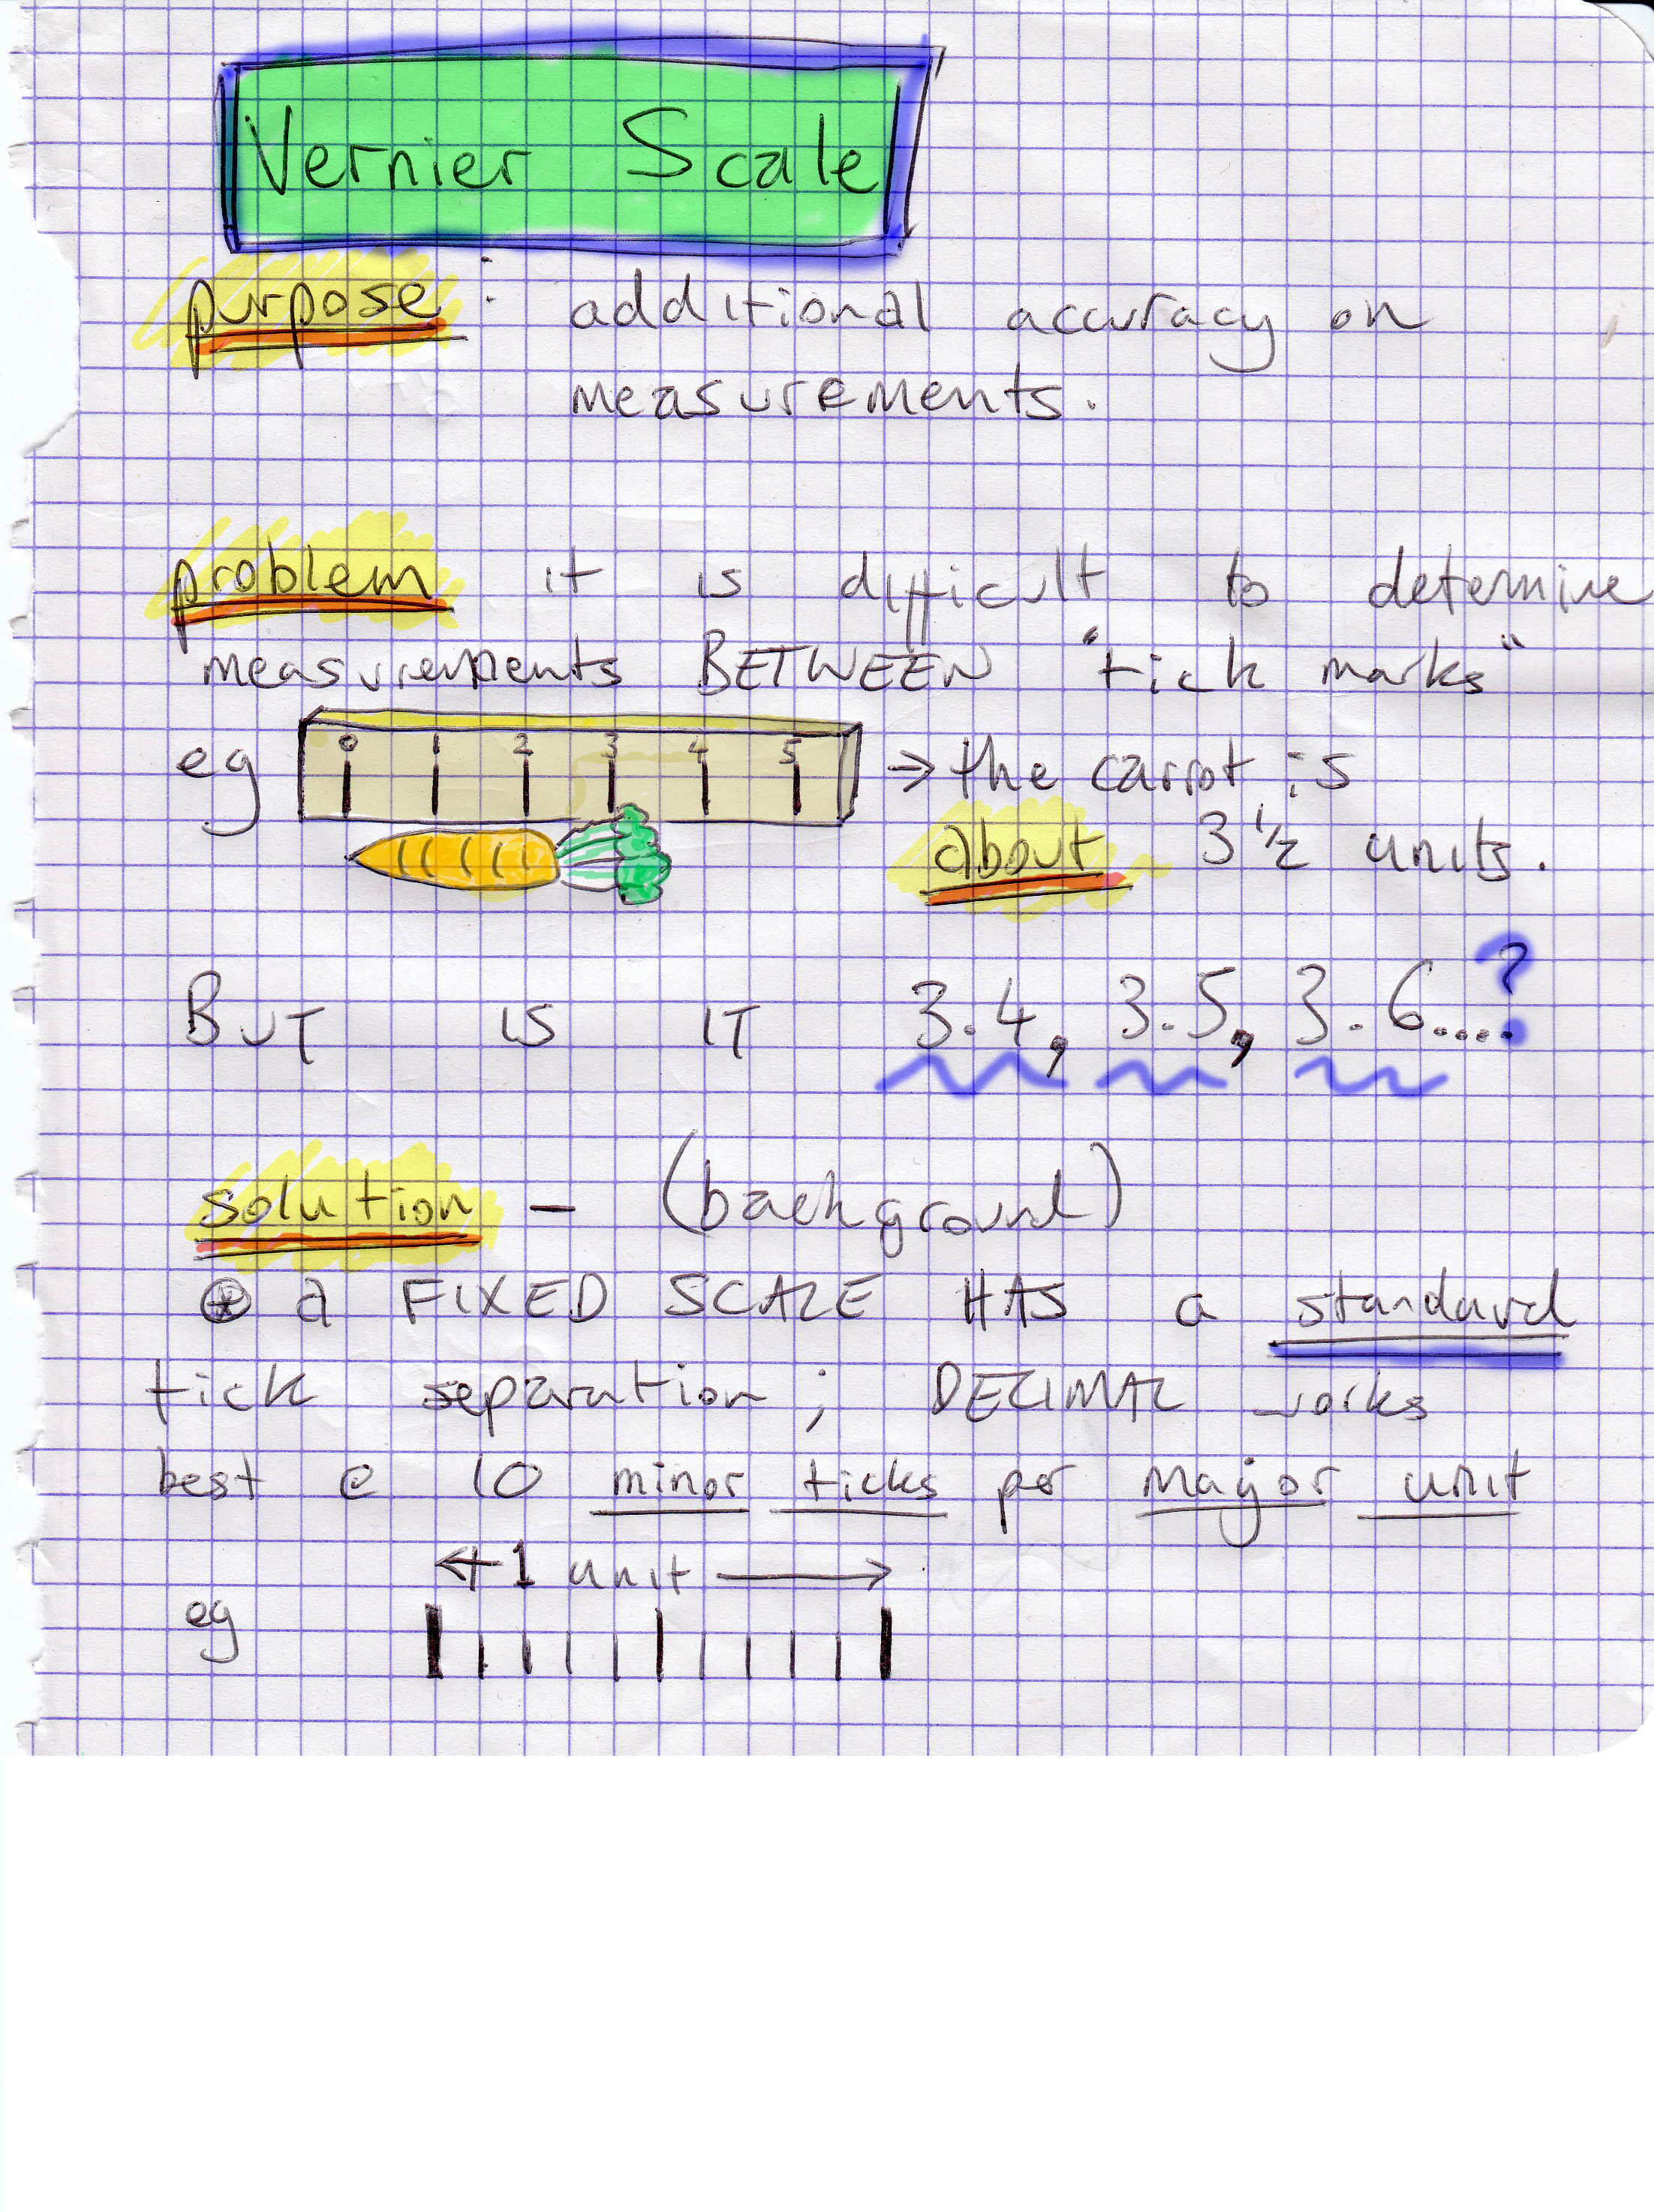 Vernier Scale
purpose : additional accuracy on
measurements.
problem it is difficult to determine
measurements BETWEEN "tick marks"
eg 0 1 2 3 4 5 → the carrot is
about 3 1/2 units.
BUT IS IT 3.4, 3.5, 3.6....?
solution - (background)
⊛ a FIXED SCALE HAS a standard
tick separation ; DECIMAL works
best @ 10 minor ticks per major unit
← 1 unit →
eg